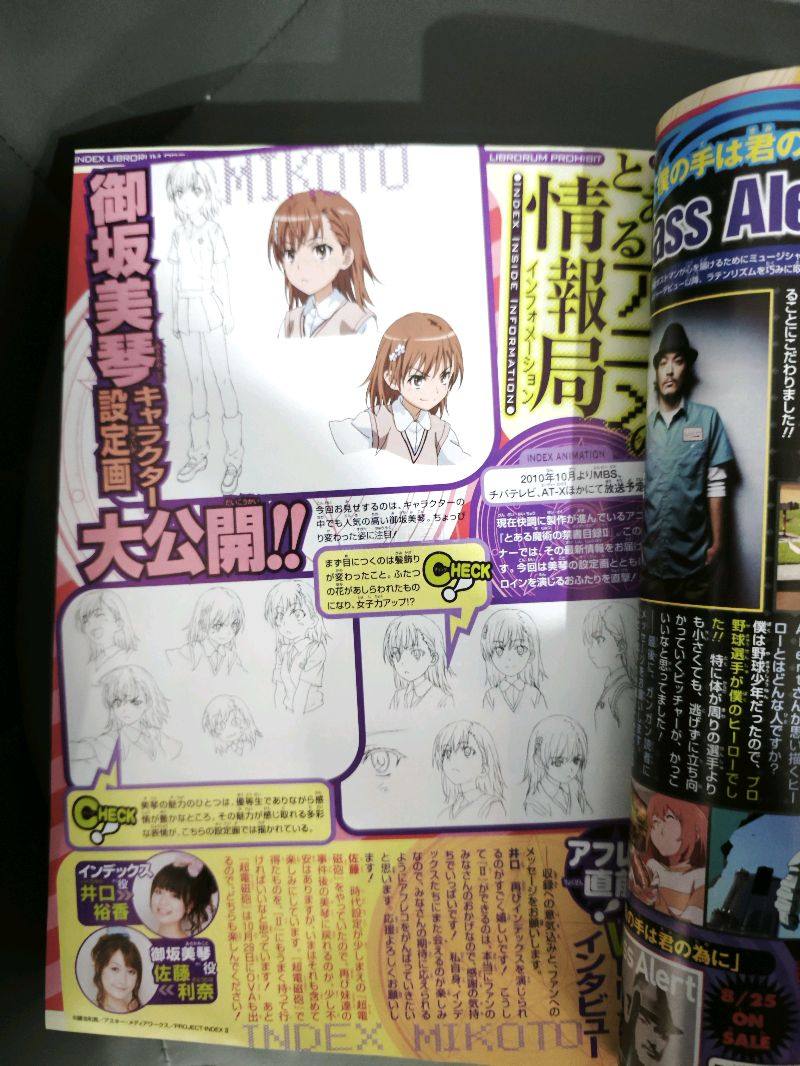 INDEX LIBRORUM
MIKOTO
御坂美琴
キャラクター
設定画
だいこうかい
大公開!!
LIBRORUM PROHIBIT
とあるアニメ
情報局
インフォメーション
●INDEX INSIDE INFORMATION●
INDEX ANIMATION
2010年10月よりMBS、
チバテレビ、AT-Xほかにて放送予定
現在快調に製作が進んでいるアニ
『とある魔術の禁書目録Ⅱ』。この
ナーでは、その最新情報をお届け
す。今回は美琴の設定画とともに
ロインを演じるおふたりを直撃!
今回お見せするのは、キャラクターの
中でも人気の高い御坂美琴。ちょっぴ
り変わった姿に注目!
まず目につくのは髪飾り
が変わったこと。ふたつ
の花があしらわれたもの
になり、女子力アップ!?
CHECK!
CHECK!
美琴の魅力のひとつは、優等生でありながら感
情が豊かなところ。その魅力が感じ取れる多彩
な表情が、こちらの設定画では描かれている。
インデックス役
井口
裕香
御坂美琴役
佐藤
利奈
アフレコ
直前!
インタビュー
――収録への意気込みと、ファンへの
メッセージをお願いします。
井口 再びインデックスを演じられ
るのがすごく嬉しいです! こうし
て『Ⅱ』ができるのは、本当にファンの
みなさんのおかげなので、感謝の気持
ちでいっぱいです! 私自身、インデ
ックスたちにまた会えるのが楽しみ
なので、みなさんの期待に応えられる
ようにアフレコをがんばっていきたい
と思います。応援よろしくお願いし
ます!
佐藤 時代設定が少しまえの『超電
磁砲』をやっていたので、再び妹達の
事件後の美琴に戻れるのか、少し不
安はありますが、いまはそれも含めて
楽しみにしています。『超電磁砲』で
得たものを、『Ⅱ』にもうまく持って行
ければいいなと思っています! あと
『超電磁砲』は10月29日にOVAも出
るので、どちらも楽しんでください!
INDEX MIKOTO
©鎌池和馬/アスキー・メディアワークス/PROJECT-INDEX Ⅱ
僕の手は君の
ass Ale
ることにこだわりました!!
ローとはどんな人ですか?
僕は野球少年だったので、プロ
野球選手が僕のヒーローでし
た!! 特に体が周りの選手より
も小さくても、逃げずに立ち向
かっていくピッチャーが、かっこ
いいなと思ってました!
の手は君の為に」
ss Alert
8/25
ON
SALE